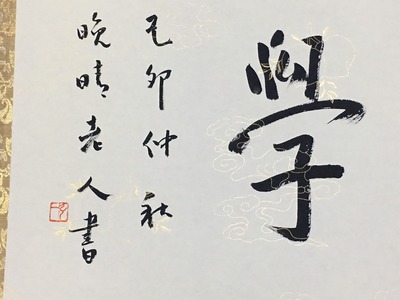 學
己卯仲秋
晚晴老人書